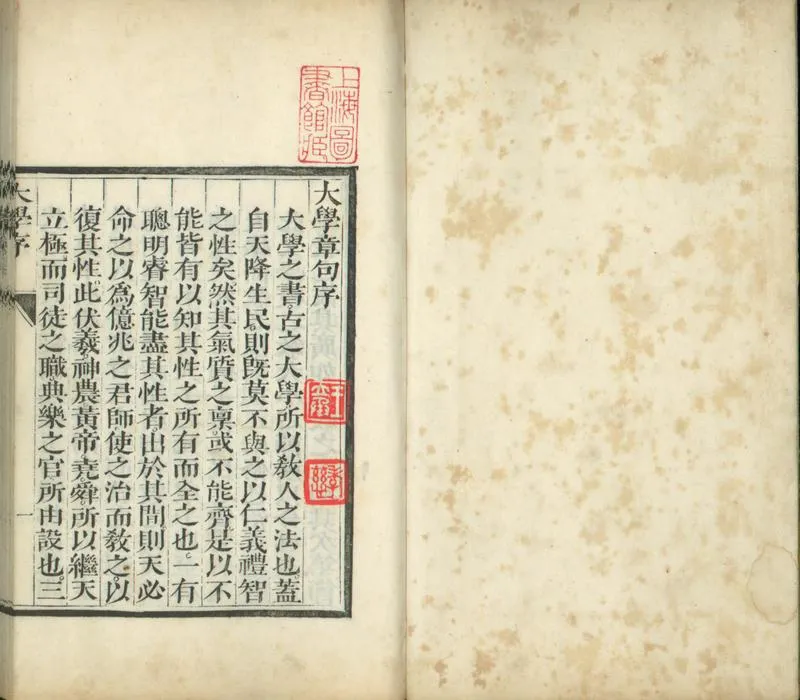 上海圖
書館藏
大學章句序
大學之書古之大學所以敎人之法也。蓋
自天降生民則旣莫不與之以仁義禮智
之性矣然其氣質之稟或不能齊是以不
能皆有以知其性之所有而全之也。一有
聰明睿智能盡其性者出於其間則天必
命之以爲億兆之君師使之治而敎之以
復其性此伏羲神農黃帝堯舜所以繼天
立極而司徒之職典樂之官所由設也。三
大學序
一